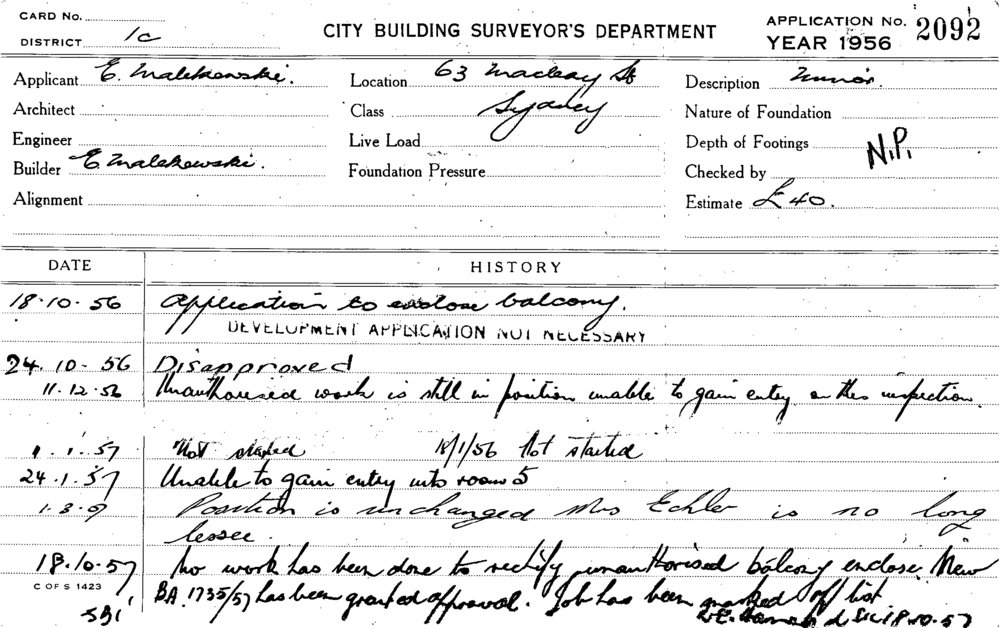 CARD No.
DISTRICT 1c
CITY BUILDING SURVEYOR'S DEPARTMENT
APPLICATION No. 2092
YEAR 1956
Applicant E. Malekewski.
Location 63 Macleay St
Description Minor.
Architect
Class Sydney
Nature of Foundation
Engineer
Live Load
Depth of Footings N.P.
Builder E Malekewski.
Foundation Pressure
Checked by
Alignment
Estimate £ 40.
DATE HISTORY
18.10.56 Application to enclose balcony.
DEVELOPMENT APPLICATION NOT NECESSARY
24.10.56 Disapproved
11.12.56 Unauthorised work is still in position unable to gain entry on this inspection.
1.1.57 Not started 18/1/56 Not started
24.1.57 Unable to gain entry into room 5
Position is unchanged Mrs Echler is no long
lessee.
18.10.57 No work has been done to rectify unauthorised balcony enclose. New
C OF S 1423
BA. 1735/57 has been granted approval. Job has been marked off list
18.10.57